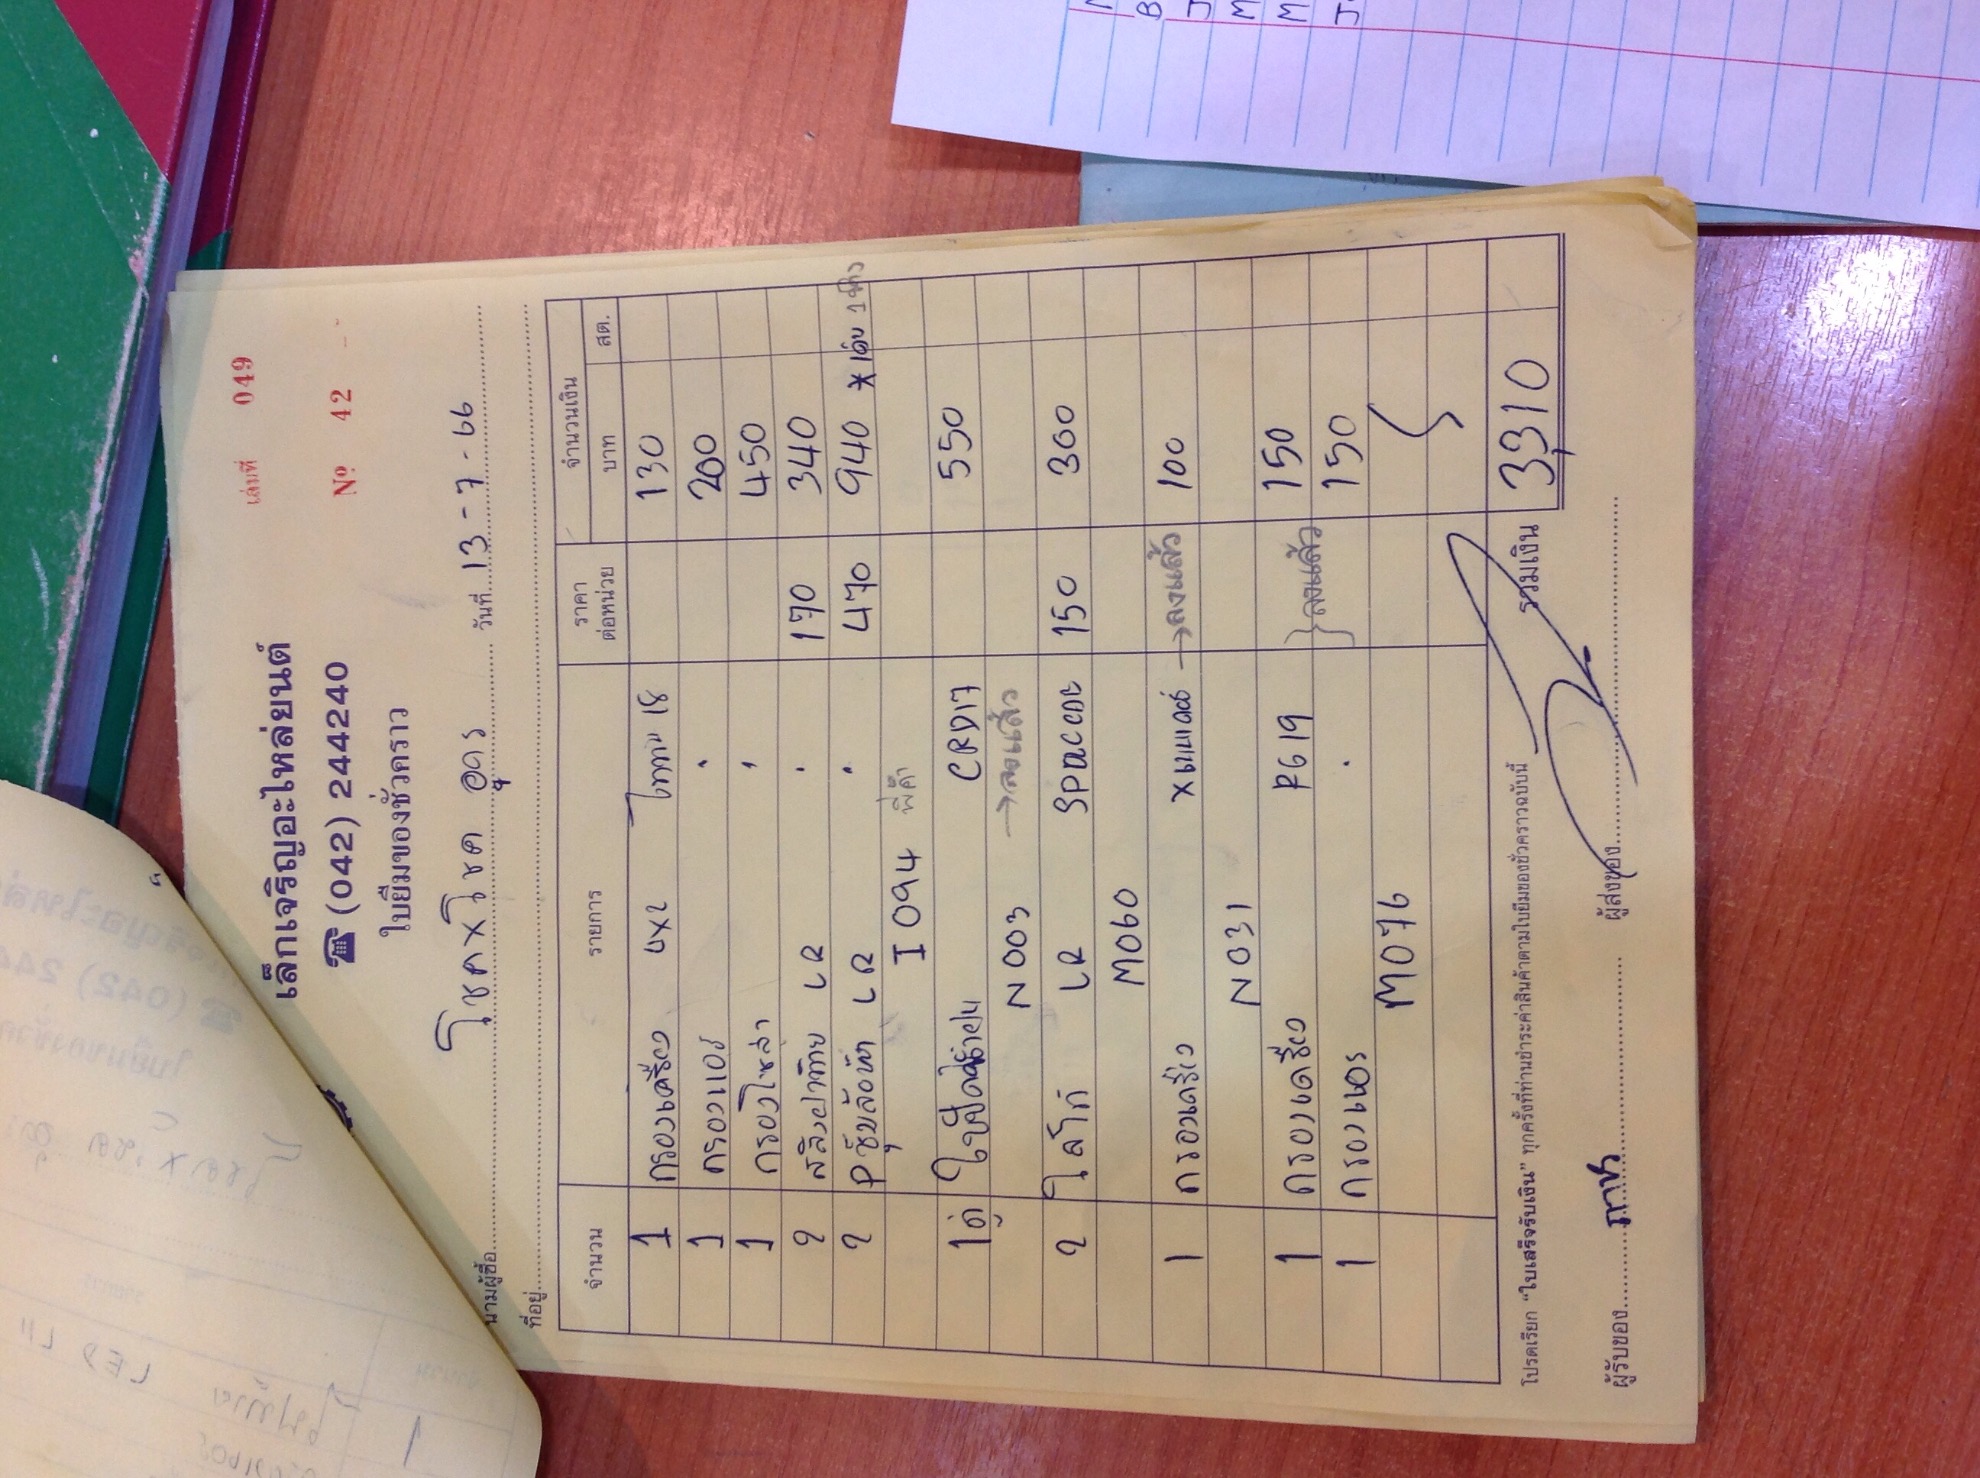 เล่มที่ 049
เล็กเจริญอะไหล่ยนต์
☎ (042) 244240
ใบยืมของชั่วคราว
Nº 42
นามผู้ซื้อ โชคxโชค อุดร วันที่ 13-7-66
ที่อยู่
จำนวน รายการ ราคาต่อหน่วย จำนวนเงิน บาท สต.
1 กรองเครื่อง 4x2 ไททัน 18 130
1 กรองแอร์ " 200
1 กรองโซล่า " 450
2 LR " 170 340
2 LR " 470 940
I 094 พี่ค้า
1คู่ CRD17 550
N 003 → ลงแล้ว
2 LR 150 360
M060
1 กรองเครื่อง → ลงแล้ว 100
N031
1 กรองเครื่อง P619 } ลงแล้ว 150
1 กรองแอร์ " 150
M076
รวมเงิน 3,310
โปรดเรียก "ใบเสร็จรับเงิน" ทุกครั้งที่ท่านชำระค่าสินค้าตามใบยืมของชั่วคราวฉบับนี้
ผู้รับของ ผู้ส่งของ